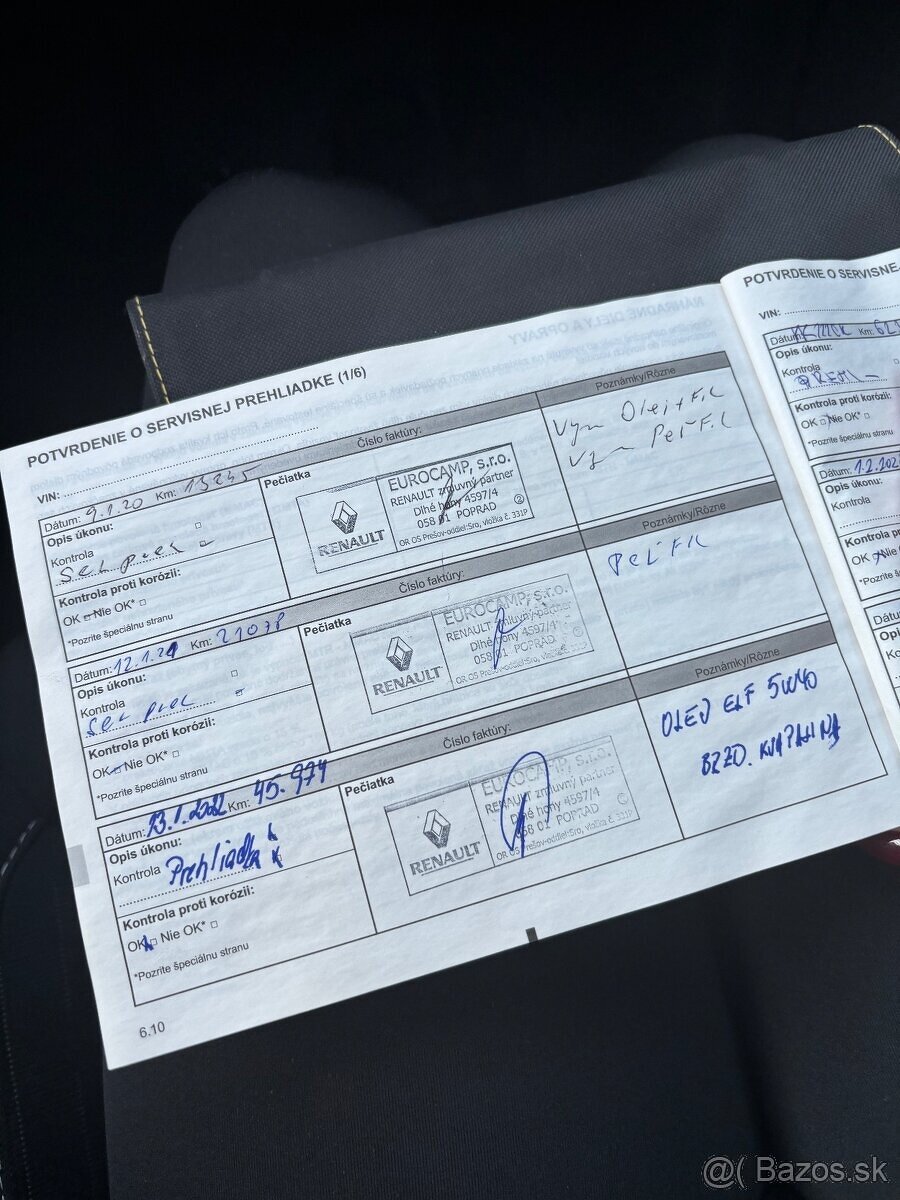 POTVRDENIE O SERVISNEJ PREHLIADKE (1/6)
VIN:
Dátum: 9.1.20 Km: 13245
Opis úkonu:
Kontrola
Kontrola proti korózii:
OK Nie OK*
*Pozrite špeciálnu stranu
Číslo faktúry:
Pečiatka
RENAULT
EUROCAMP, s.r.o.
RENAULT zmluvný partner
Dlhé hony 4597/4
058 01 POPRAD
OR OS Prešov-oddiel:Sro, vložka č. 331P
Poznámky/Rôzne
Vym Olej+Fil
Vym Peľ Fil
Dátum: 12.1.21 Km:
Opis úkonu:
Kontrola
Kontrola proti korózii:
OK Nie OK*
*Pozrite špeciálnu stranu
Číslo faktúry:
Pečiatka
RENAULT
EUROCAMP, s.r.o.
RENAULT zmluvný partner
Dlhé hony 4597/4
058 01 POPRAD
OR OS Prešov-oddiel:Sro, vložka č. 331P
Poznámky/Rôzne
Peľ Fil
Dátum: 13.1.2022 Km: 45.974
Opis úkonu:
Kontrola Prehliadka
Kontrola proti korózii:
OK Nie OK*
*Pozrite špeciálnu stranu
Číslo faktúry:
Pečiatka
RENAULT
EUROCAMP, s.r.o.
RENAULT zmluvný partner
Dlhé hony 4597/4
058 01 POPRAD
OR OS Prešov-oddiel:Sro, vložka č. 331P
Poznámky/Rôzne
OLEJ ELF 5W40
BRZD. KVAPALINA
6.10
NÁHRADNÉ DIELY A OPRAVY
POTVRDENIE O SERVISNE
VIN:
Dátum: Km:
Opis úkonu:
Kontrola
Kontrola proti korózii:
OK Nie OK*
*Pozrite špeciálnu stranu
Opis úkonu:
Kontrola
@( Bazos.sk